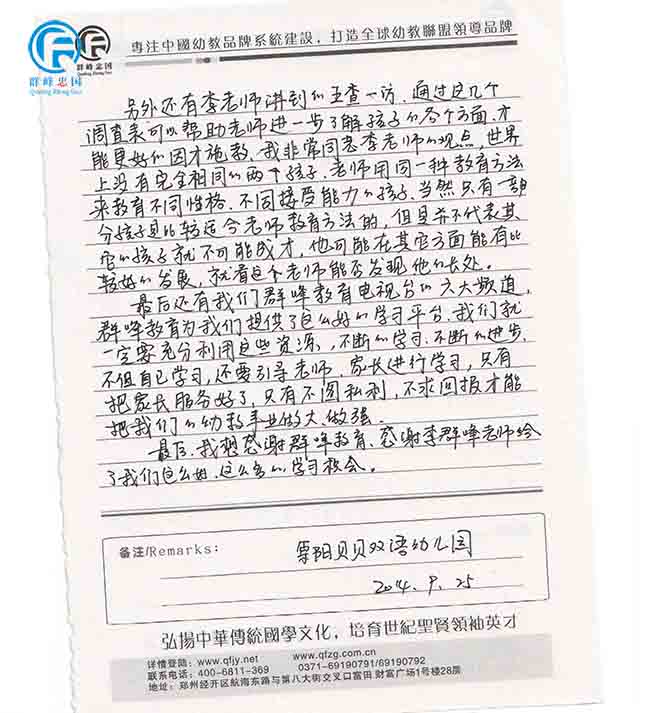 群峰忠国
Qunfeng Zhong Guo
群峰忠国
Qunfeng Zhong Guo
專注中國幼教品牌系統建設，打造全球幼教聯盟領導品牌
另外还有李老师讲到的五查一访，通过这几个
调查表可以帮助老师进一步了解孩子的各个方面，才
能更好的因才施教，我非常同意李老师的观点，世界
上没有完全相同的两个孩子，老师用同一种教育方法
来教育不同性格、不同接受能力的孩子，当然只有一部
分孩子是比较适合老师教育方法的，但是并不代表其
它的孩子就不可能成才，他可能在其它方面能有比
较好的发展，就看这个老师能否发现他的长处。
最后还有我们群峰教育电视台的六大频道，
群峰教育为我们提供了这么好的学习平台，我们就
一定要充分利用这些资源，不断的学习，不断的进步，
不但自己学习，还要引导老师、家长进行学习，只有
把家长服务好了，只有不图私利，不求回报才能
把我们的幼教事业做大、做强。
最后，我想感谢群峰教育、感谢李群峰老师给
了我们这么好，这么多的学习机会。
备注/Remarks:
阳贝贝双语幼儿园
2014. 9. 25
弘揚中華傳統國學文化，培育世紀聖賢領袖英才
详情登陆：www.qfjy.net www.qfzg.com.cn
联系电话：400-6811-369 0371-69190791/69190792
地址：郑州经开区航海东路与第八大街交叉口富田财富广场1号楼28层